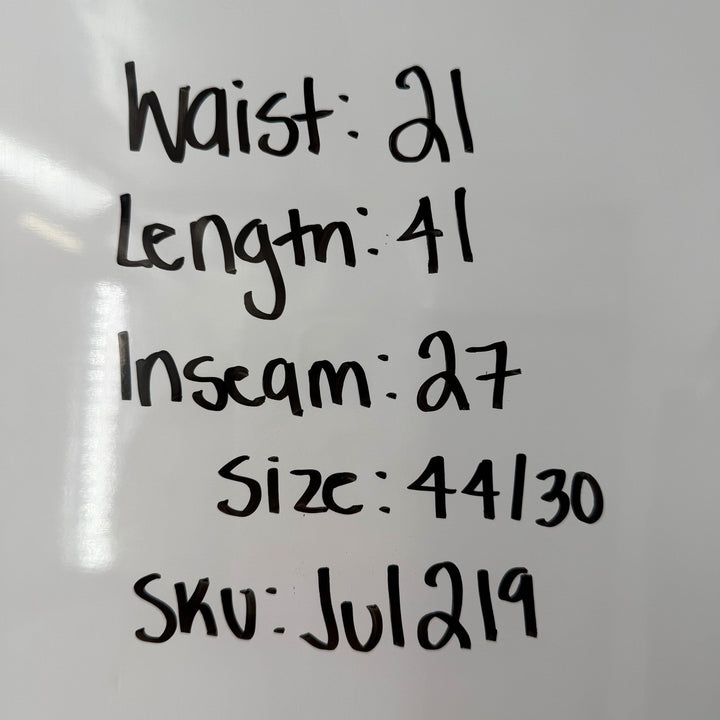 Waist: 21
Length: 41
Inseam: 27
Size: 44/30
SKU: Jul219